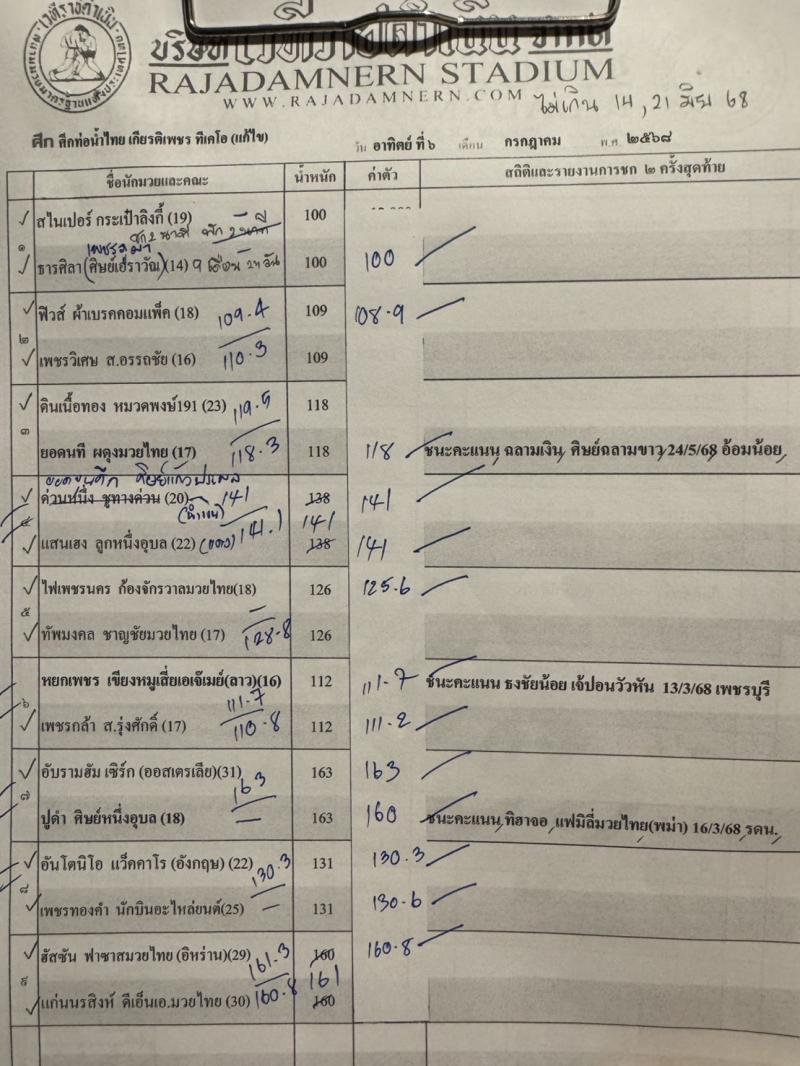 บริษัท เวทีราชดำเนิน จำกัด
RAJADAMNERN STADIUM
WWW.RAJADAMNERN.COM
ไม่เกิน 14, 21 มิย 68
ศึก ศึกท่อน้ำไทย เกียรติเพชร ทีเคโอ (แก้ไข)
วัน อาทิตย์ ที่ ๖ เดือน กรกฎาคม พ.ศ. ๒๕๖๘
ชื่อนักมวยและคณะ น้ำหนัก ค่าตัว สถิติและรายงานการชก ๒ ครั้งสุดท้าย
สไนเปอร์ กระเป๋าลิงกี้ (19) 100
๑
ธารศิลา (ศิษย์เฮราวัณ) (14) 100 100
ฟิวส์ ผ้าเบรคคอมแพ็ค (18) 109.4 109 108.9
๒
เพชรวิเศษ ส.อรรถชัย (16) 110.3 109
ดินเนื้อทอง หมวดพงษ์191 (23) 119.5 118
๓
ยอดนที ผดุงมวยไทย (17) 118.3 118 118 ชนะคะแนน ฉลามเงิน ศิษย์ฉลามขาว 24/5/68 อ้อมน้อย
ด่วนหนึ่ง ชูทางด่วน (20) 141 138 141
๔ 141
แสนเฮง ลูกหนึ่งอุบล (22) (แดง) 141.1 138 141
ไฟเพชรนคร ก้องจักรวาลมวยไทย(18) 126 125.6
๕
ทัพมงคล ชาญชัยมวยไทย (17) 128.8 126
หยกเพชร เขียงหมูเสี่ยเอเจ๊เมย์(ลาว)(16) 112 111.7 ชนะคะแนน ธงชัยน้อย เจ้ปอนวัวหัน 13/3/68 เพชรบุรี
๖ 111.7
เพชรกล้า ส.รุ่งศักดิ์ (17) 110.8 112 111.2
อับรามฮัม เซิร์ก (ออสเตรเลีย)(31) 163 163 163
๗
ปูดำ ศิษย์หนึ่งอุบล (18) 163 160 ชนะคะแนน ทิฮาจอ แฟมิลี่มวยไทย(พม่า) 16/3/68 รดน.
อันโตนิโอ แว็คคาโร (อังกฤษ) (22) 130.3 131 130.3
๘
เพชรทองคำ นักบินอะไหล่ยนต์(25) 131 130.6
ฮัสซัน ฟาซาสมวยไทย (อิหร่าน)(29) 161.3 160 160.8
๙ 161
แก่นนรสิงห์ ดีเอ็นเอ.มวยไทย (30) 160.8 160